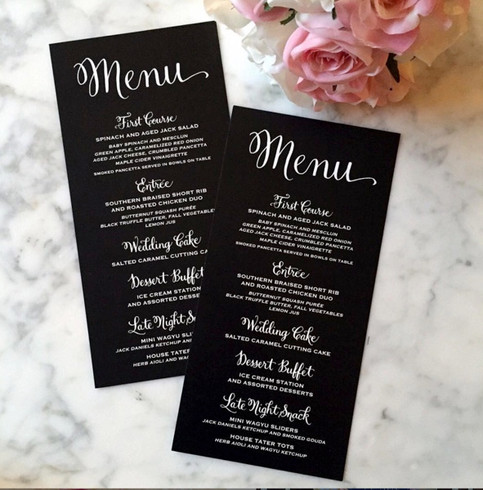 Menu
First Course
SPINACH AND AGED JACK SALAD
BABY SPINACH AND MESCLUN
GREEN APPLE, CARAMELIZED RED ONION
AGED JACK CHEESE, CRUMBLED PANCETTA
MAPLE CIDER VINAIGRETTE
SMOKED PANCETTA SERVED IN BOWLS ON TABLE
Entrée
SOUTHERN BRAISED SHORT RIB
AND ROASTED CHICKEN DUO
BUTTERNUT SQUASH PURÉE
BLACK TRUFFLE BUTTER, FALL VEGETABLES
LEMON JUS
Wedding Cake
SALTED CARAMEL CUTTING
Dessert Buffet
ICE CREAM STATION
AND ASSORTED DESSERTS
Late Night Sn
MINI WAGYU SLIDERS
JACK DANIELS KETCHUP AND
HOUSE TATER TOTS
HERB AIOLI AND KETCHUP
Menu
First Course
SPINACH AND AGED JACK SALAD
BABY SPINACH AND MESCLUN
GREEN APPLE, CARAMELIZED RED ONION
AGED JACK CHEESE, CRUMBLED PANCETTA
MAPLE CIDER VINAIGRETTE
SMOKED PANCETTA SERVED IN BOWLS ON TABLE
Entrée
SOUTHERN BRAISED SHORT RIB
AND ROASTED CHICKEN DUO
BUTTERNUT SQUASH PURÉE
BLACK TRUFFLE BUTTER, FALL VEGETABLES
LEMON JUS
Wedding Cake
SALTED CARAMEL CUTTING CAKE
Dessert Buffet
ICE CREAM STATION
AND ASSORTED DESSERTS
Late Night Snack
MINI WAGYU SLIDERS
JACK DANIELS KETCHUP AND SMOKED GOUDA
HOUSE TATER TOTS
HERB AIOLI AND KETCHUP